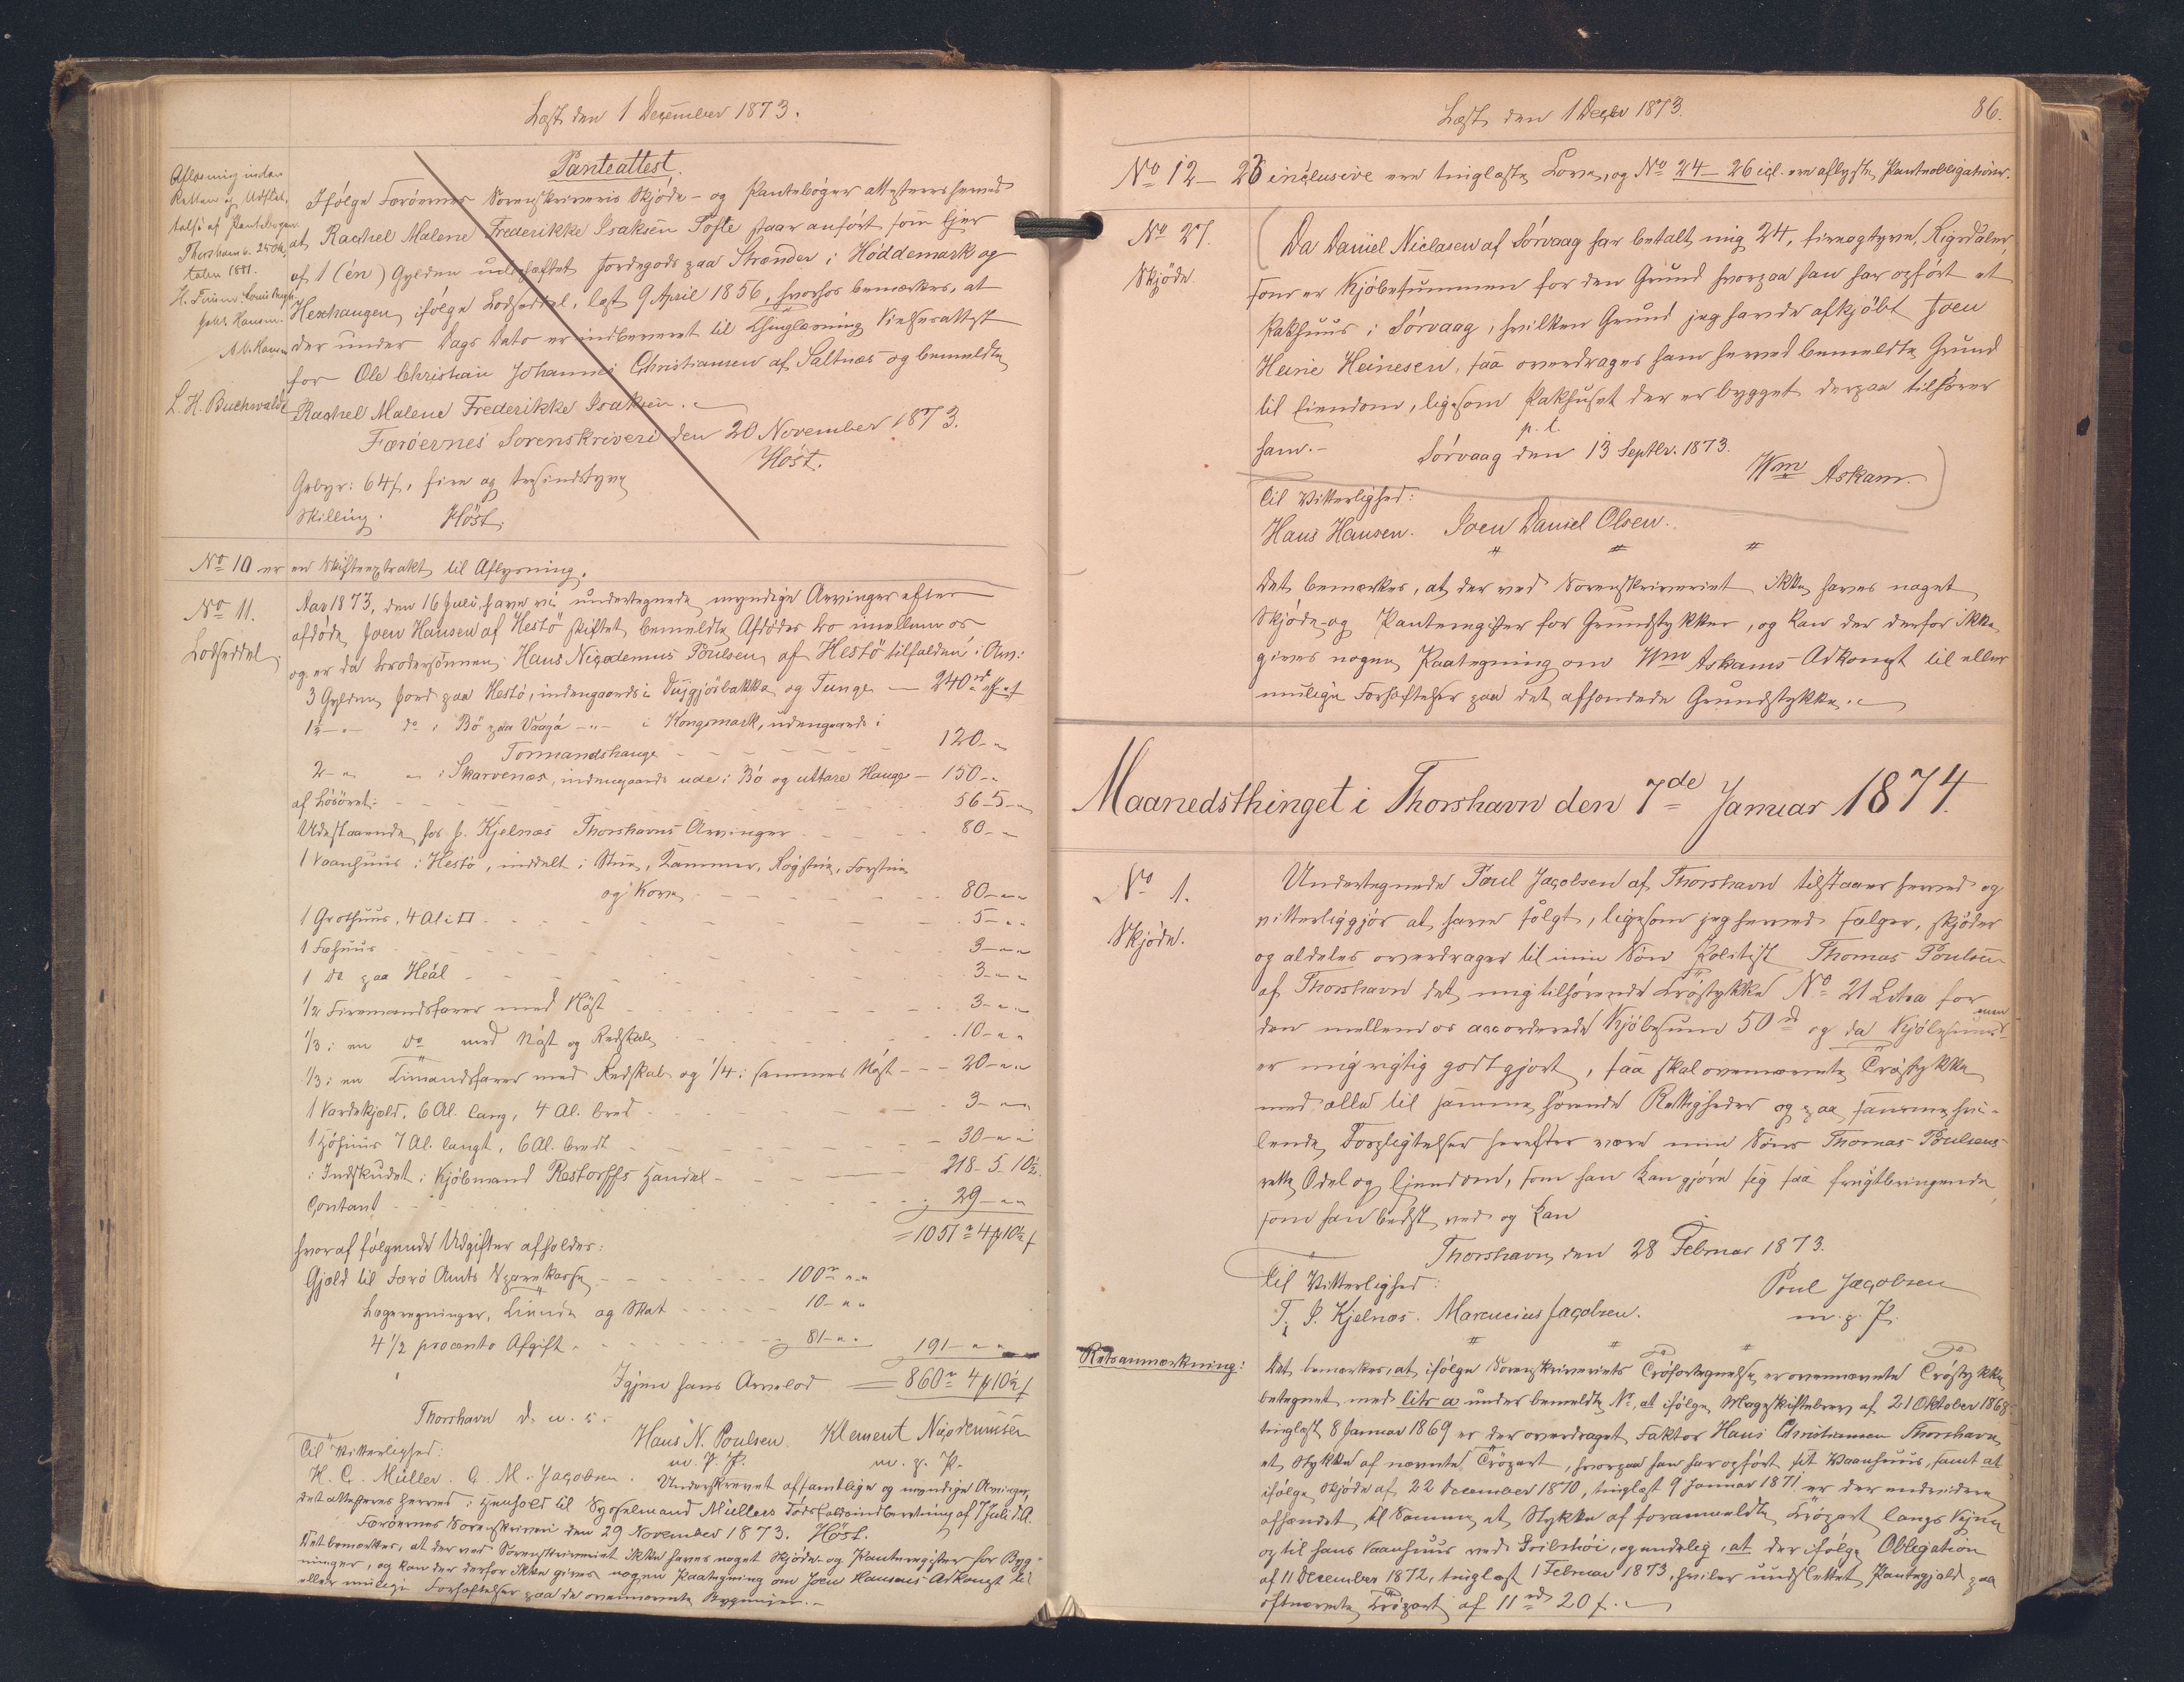 Læst den 1 December 1873.
Aflæsning inden
Retten og Udslet-
telse af Pantebogen
Thorshavn 25 Ok-
tober 1881.
H. Finsen. Louis Bergh.
Jakob Hansen.
N. N. Hansen
L. H. Buchwaldt
Panteattest.
Ifølge Færøernes Sorenskriveris Skjøde- og Pantebøger attesteres herved
at Rachel Malene Frederikke Isaksen Tofte staar anført som Ejer
af 1 (én) Gylden udeløftet Jordegods paa Strænder i Høddemark og
Hexhaugen, ifølge Lodseddel, læst 9 April 1856, hvorhos bemærkes, at
der under Dags Dato er indleveret til Thinglæsning Vielsesattest
for Ole Christian Johannes Christiansen af Saltnæs og bemeldte
Rachel Malene Frederikke Isaksen.
Færøernes Sorenskriveri den 20 November 1873.
Høst.
Gebyr: 64 ß, fire og tresindstyve
Skilling. Høst.
No 10 er en Skifteextrakt til Aflysning.
No 11.
Lodseddel.
Aar 1873, den 16 Juli, have vi undertegnede myndige Arvinger efter
afdøde Joen Hansen af Hestø skiftet bemeldte Afdødes Bo imellem os
og er da Brodersønnen Hans Nicodemus Poulsen af Hestø tilfalden i Arv:
3 Gylden Jord paa Hestø, indengaards i Dujgjøsbakke og Tunge — 240 rd " ß
1½ - " - do i Bø paa Vaagø - " - i Kongsmark, udengaards i
Tormandshauge 120 - "
2 - " " i Skarvenæs, indengaards ude i Bø og uttare Hauge — 150 - "
af Løsøret: 56 - 5 - "
Udestaaende hos J. Kjelnæs Thorshavns Arvinger 80 - "
1 Vaanhuus i Hestø, inddelt i Stue, Kammer, Røgstue, Forstue
og Kove 80 - " "
1 Grothuus, 4 Al i □ 5 - " "
1 Fæhuus 3 - " "
1 do paa Heäl 3 - " "
1/2 Firemandsfarer med Nøst 3 - " "
1/3 i en do med Nøst og Redskab 10 - " "
1/3 i en Timandsfarer med Redskab og 1/4 i sammes Nøst 20 - " "
1 Vardekjold, 6 Al. lang, 4 Al. bred 3 - " "
1 Høhuus 7 Al. langt, 6 Al. bredt 30 - " "
i Indskudet i Kjøbmand Restorffs Handel 218 - 5 10½
Contant 29 - " "
= 1051 rd 4 ꝑ 10½ ß
hvoraf følgende Udgifter afholdes:
Gjæld til Færø Amts Sparekasse 100 rd " "
Lægeregninger, Tiende og Skat 10 - " "
4 1/2 procento Afgift 81 - " " 191 - " "
Igjen hans Arvelod = 860 rd 4 ꝑ 10½ ß
Thorshavn d. u. s.
Hans N. Poulsen Klement Nicodemussen
m. p. P. m. p. P.
Til Vitterlighed:
H. C. Müller. C. M. Jacobsen. Underskrevet af samtlige og myndige Arvinger,
det attesteres herved i Henhold til Sysselmand Müllers Dødsfaldsindberetning af 7 Juli d. A.
Færøernes Sorenskriveri den 29 November 1873. Høst.
Det bemærkes, at der ved Sorenskriveriet ikke haves noget Skjøde- og Panteregister for Byg-
ninger, og kan der derfor ikke gives nogen Paategning om Joen Hansens Adkomst til
eller mulige Forhæftelser paa de ovennævnte Bygninger.
Læst den 1 Decbr 1873. 86.
No 12 — 23 inclusive ere tinglæste Love, og No 24 — 26 icl. ere aflyste Panteobligationer.
No 27.
Skjøde.
Da Daniel Niclasen af Sørvaag har betalt mig 24, fireogtyve, Rigsdaler,
som er Kjøbesummen for den Grund hvorpaa han har opført et
Pakhuus i Sørvaag, hvilken Grund jeg havde afkjøbt Joen
Heine Heinesen, saa overdrages ham herved bemeldte Grund
til Eiendom, ligesom Pakhuset der er bygget derpaa tilhører
ham. — p. t.
Sørvaag den 13 Septbr. 1873.
Wm Askam.
Til Vitterlighed:
Hans Hansen. Joen Daniel Olsen.
Det bemærkes, at der ved Sorenskriveriet ikke haves noget
Skjøde- og Panteregister for Grundstykker, og kan der derfor ikke
gives nogen Paategning om Wm Askams Adkomst til eller
mulige Forhæftelser paa det afhændede Grundstykke.
Maanedsthinget i Thorshavn den 7de Januar 1874.
No 1.
Skjøde.
Undertegnede Poul Jacobsen af Thorshavn tilstaaer herved og
vitterliggjør at have solgt, ligesom jeg herved sælger, skjøder
og aldeles overdrager til min Søn Politist Thomas Poulsen
af Thorshavn det mig tilhørende Trøstykke No 21 Litra for
den mellem os accorderede Kjøbesum 50 rd og da Kjøbesummen
er mig rigtig godtgjort, saa skal ovennævnte Trøstykke
med alle til samme hørende Rettigheder og paa samme hvi-
lende Forpligtelser herefter være min Søns Thomas Poulsens
rette Odel og Ejendom, som han kan gjøre sig saa frugtbringende
som han bedst ved og kan
Thorshavn, den 28 Februar 1873.
Til Vitterlighed: Poul Jacobsen
T. P. Kjelnæs. Marcucius Jacobsen. m. p. P.
Retsanmærkning:
Det bemærkes, at ifølge Sorenskriveriets Trøfortegnelse er ovennævnte Trøstykke
betegnet med litr a under bemeldte Nr., at ifølge Mageskiftebrev af 21 Oktober 1868
tinglæst 8 Januar 1869 er der overdraget Faktor Hans Christiansen Thorshavn
et Stykke af nævnte Trøpart, hvorpaa han har opført sit Vaanhuus, samt at
ifølge Skjøde af 22 December 1870, tinglæst 9 Januar 1871 er der endvidere
afhændet til Samme et Stykke af foranmeldte Trøpart langs Vejen
og til hans Vaanhuus ved , og endelig, at der ifølge Obligation
af 11 December 1872, tinglæst 1 Februar 1873, hviler uudslettet Pantegjæld paa
oftnævnte Trøpart af 11 rd 20 ß.